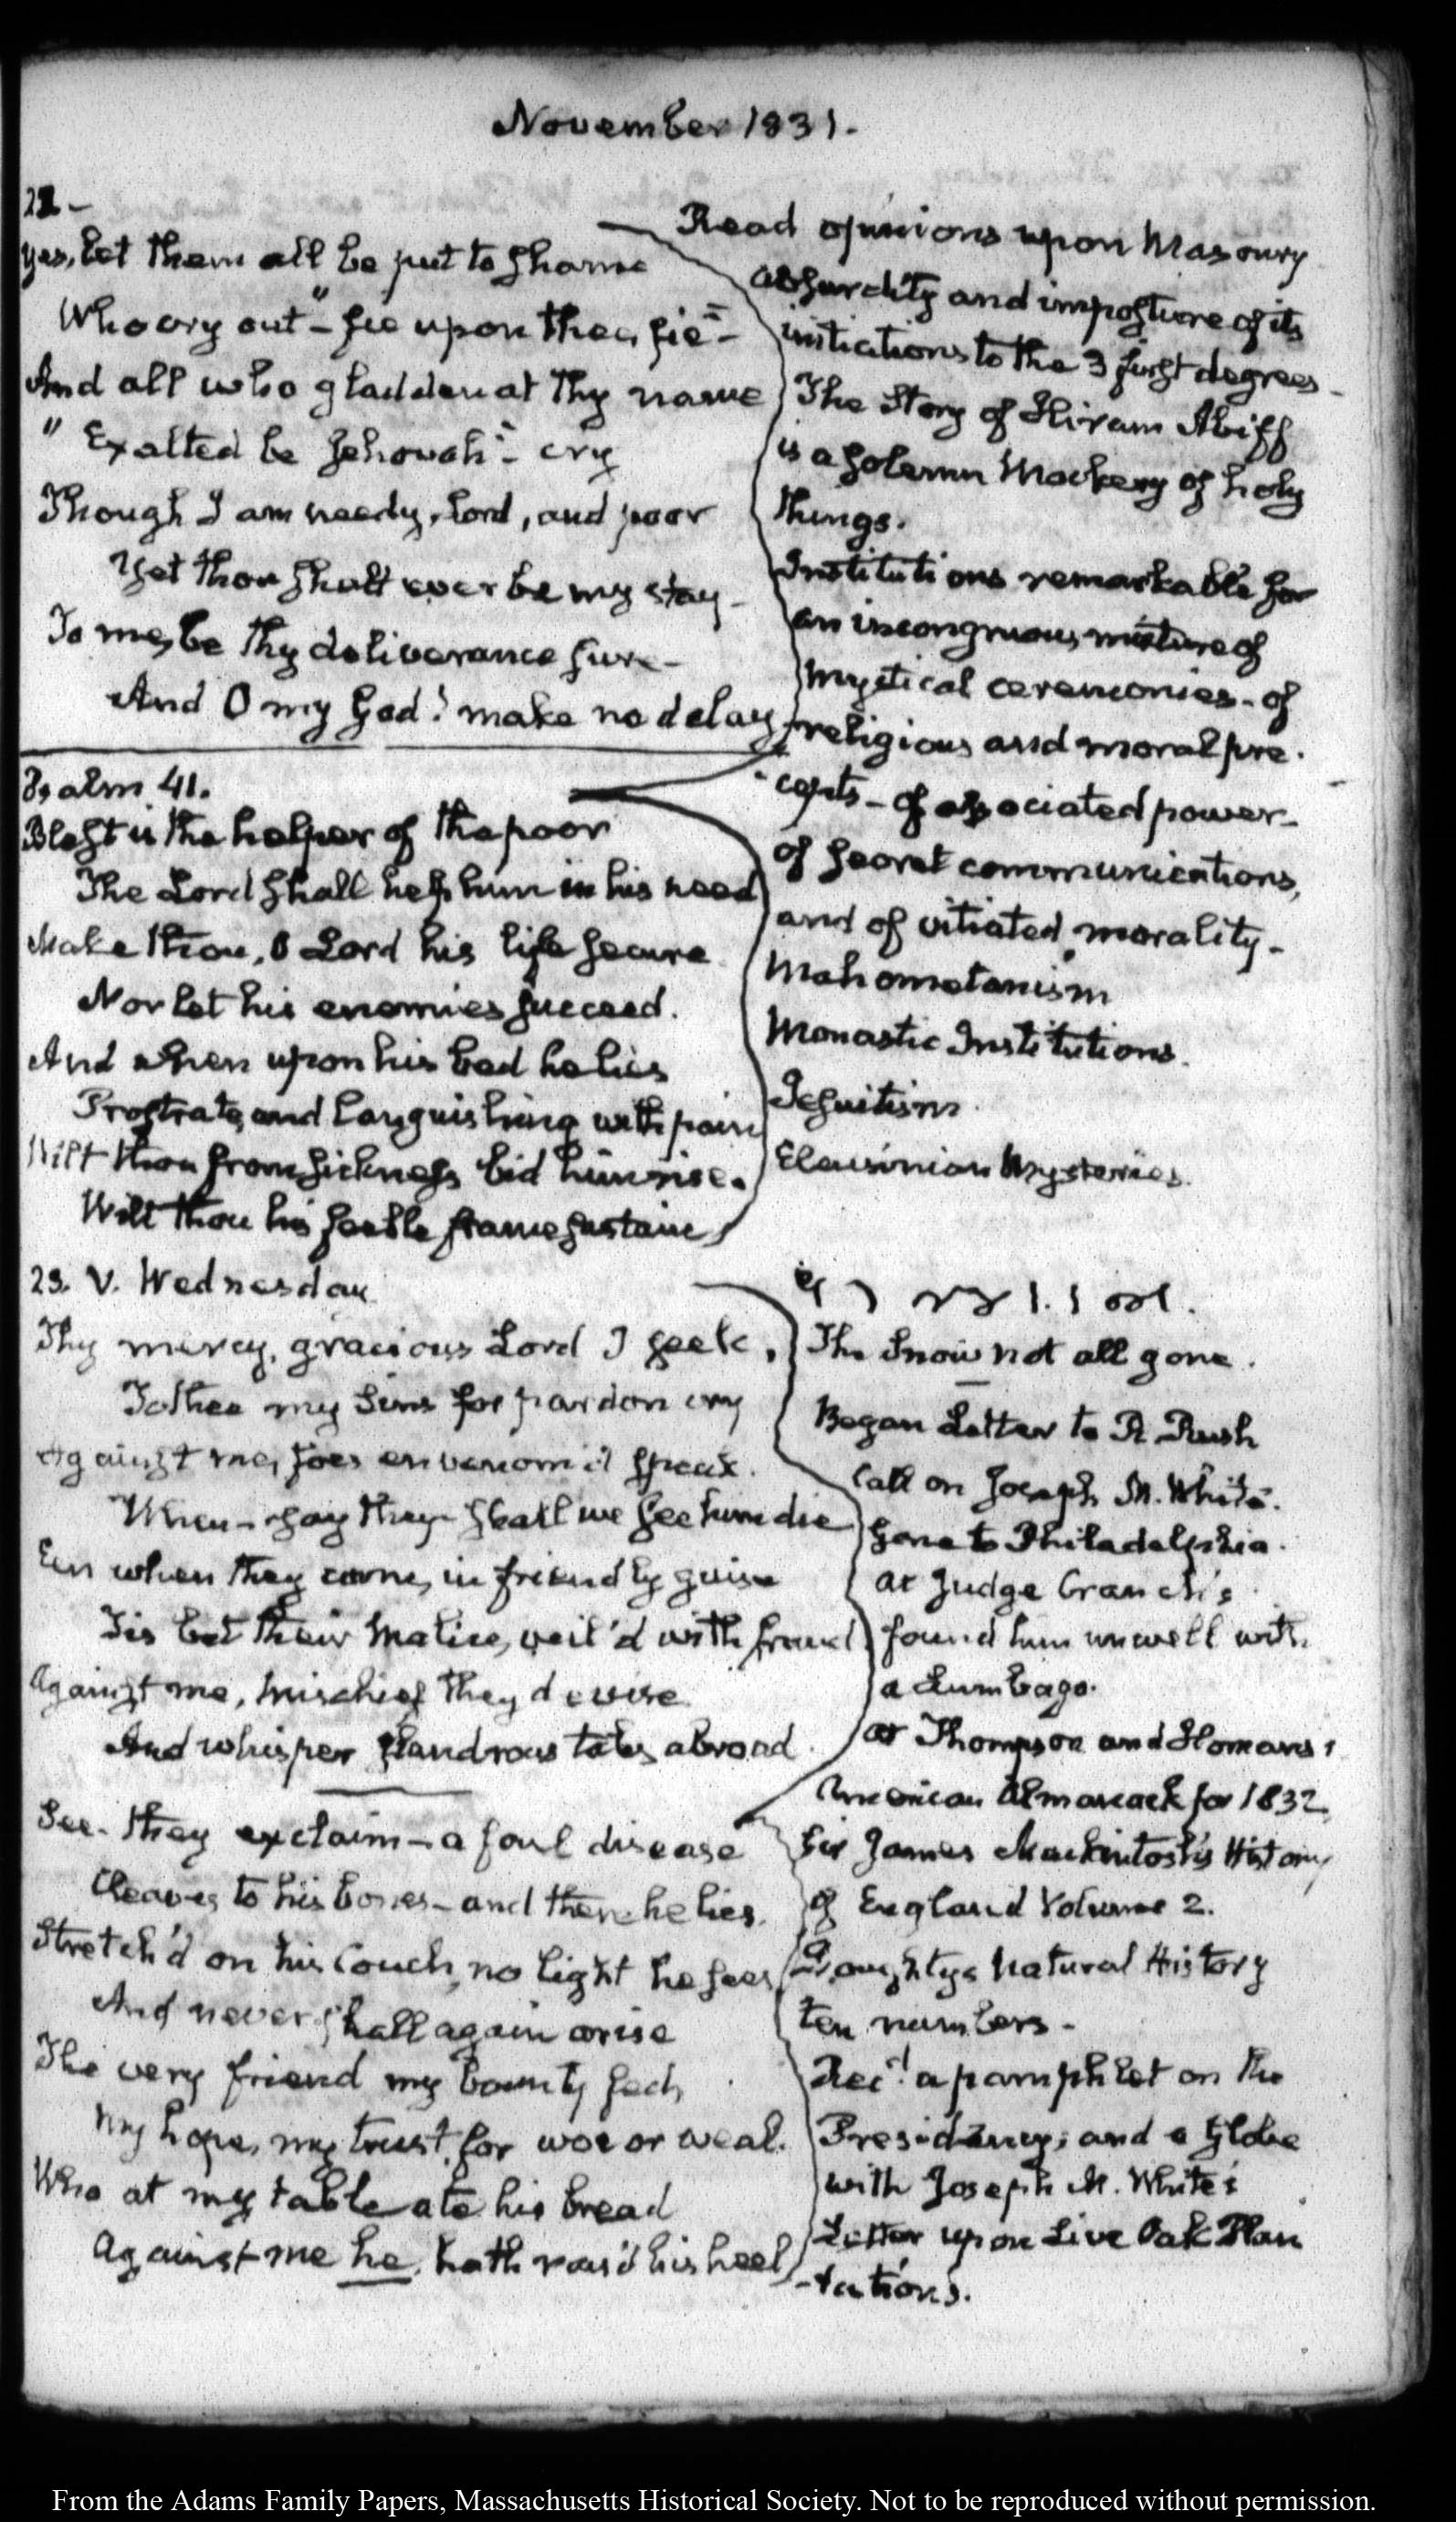 November 1831.
22 -
Yes, let them all be put to shame
Who cry out - "fie upon thee, fie" -
And all who gladden at thy name
"Exalted be Jehovah" - cry
Though I am needy, Lord, and poor
Yet thou shalt ever be my stay -
To me, be thy deliverance sure -
And O my God! make no delay.
Psalm 41.
Blest is the helper of the poor
The Lord shall help him in his need
Make thou, O Lord his life secure
Nor let his enemies succeed.
And when upon his bed he lies
Prostrate, and languishing with pain
Wilt thou from sickness bid him rise.
Wilt thou his feeble frame sustain
Read opinions upon Masonry
absurdity and imposture of its
initiations to the 3 first degrees -
The Story of Hiram Abiff
is a solemn Mockery of holy
things.
Institutions remarkable for
an incongruous mixture of
mystical ceremonies - of
religious and moral pre-
-cepts - of associated power -
of secret communications,
and of vitiated morality -
Mahometanism
Monastic Institutions.
Jesuitism.
Eleusinian Mysteries.
23. V. Wednesday
Thy mercy, gracious Lord I seek,
To thee my sins for pardon cry
Against me, foes envenom'd speak.
When - say they - shall we see him die
Een when they come, in friendly guise
Tis but their malice, veil'd with fraud
Against me, mischief they devise
And whisper slandrous tales abroad.
See - they exclaim - a foul disease
Cleaves to his bones - and there he lies.
Stretch'd on his Couch, no light he sees
And never shall again arise
The very friend my bounty fed,
My hope, my trust, for woe or weal.
Who at my table ate his bread
Against me he, hath rais'd his heel
The Snow not all gone.
Began Letter to R. Rush
Call on Joseph M. White.
Gone to Philadelphia.
at Judge Cranch's
found him unwell with
a Lumbago.
at Thompson and Homans,
American Almanack for 1832.
Sir James Mackintosh's History
of England Volume 2.
Doughtys Natural History
ten numbers -
Rec.d a pamphlet on the
Presidency; and a Globe
with Joseph M. White's
Letter upon Live Oak Plan
-tations.
From the Adams Family Papers, Massachusetts Historical Society. Not to be reproduced without permission.